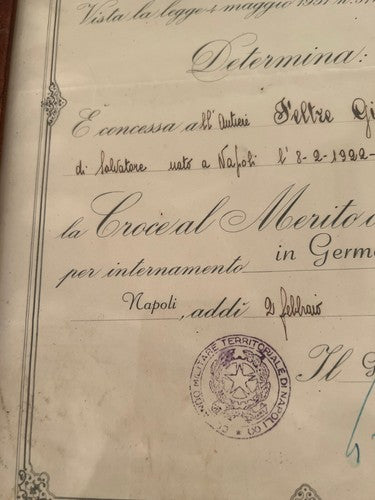 Vista la legge 4 maggio 1951 n. 
Determina:
È concessa all'Autiere Feltre Gi
di Salvatore nato a Napoli l'8-2-1922-
la Croce al Merito
per internamento in Germ
Napoli, addì 2 febbraio
Il G
COMANDO MILITARE TERRITORIALE DI NAPOLI